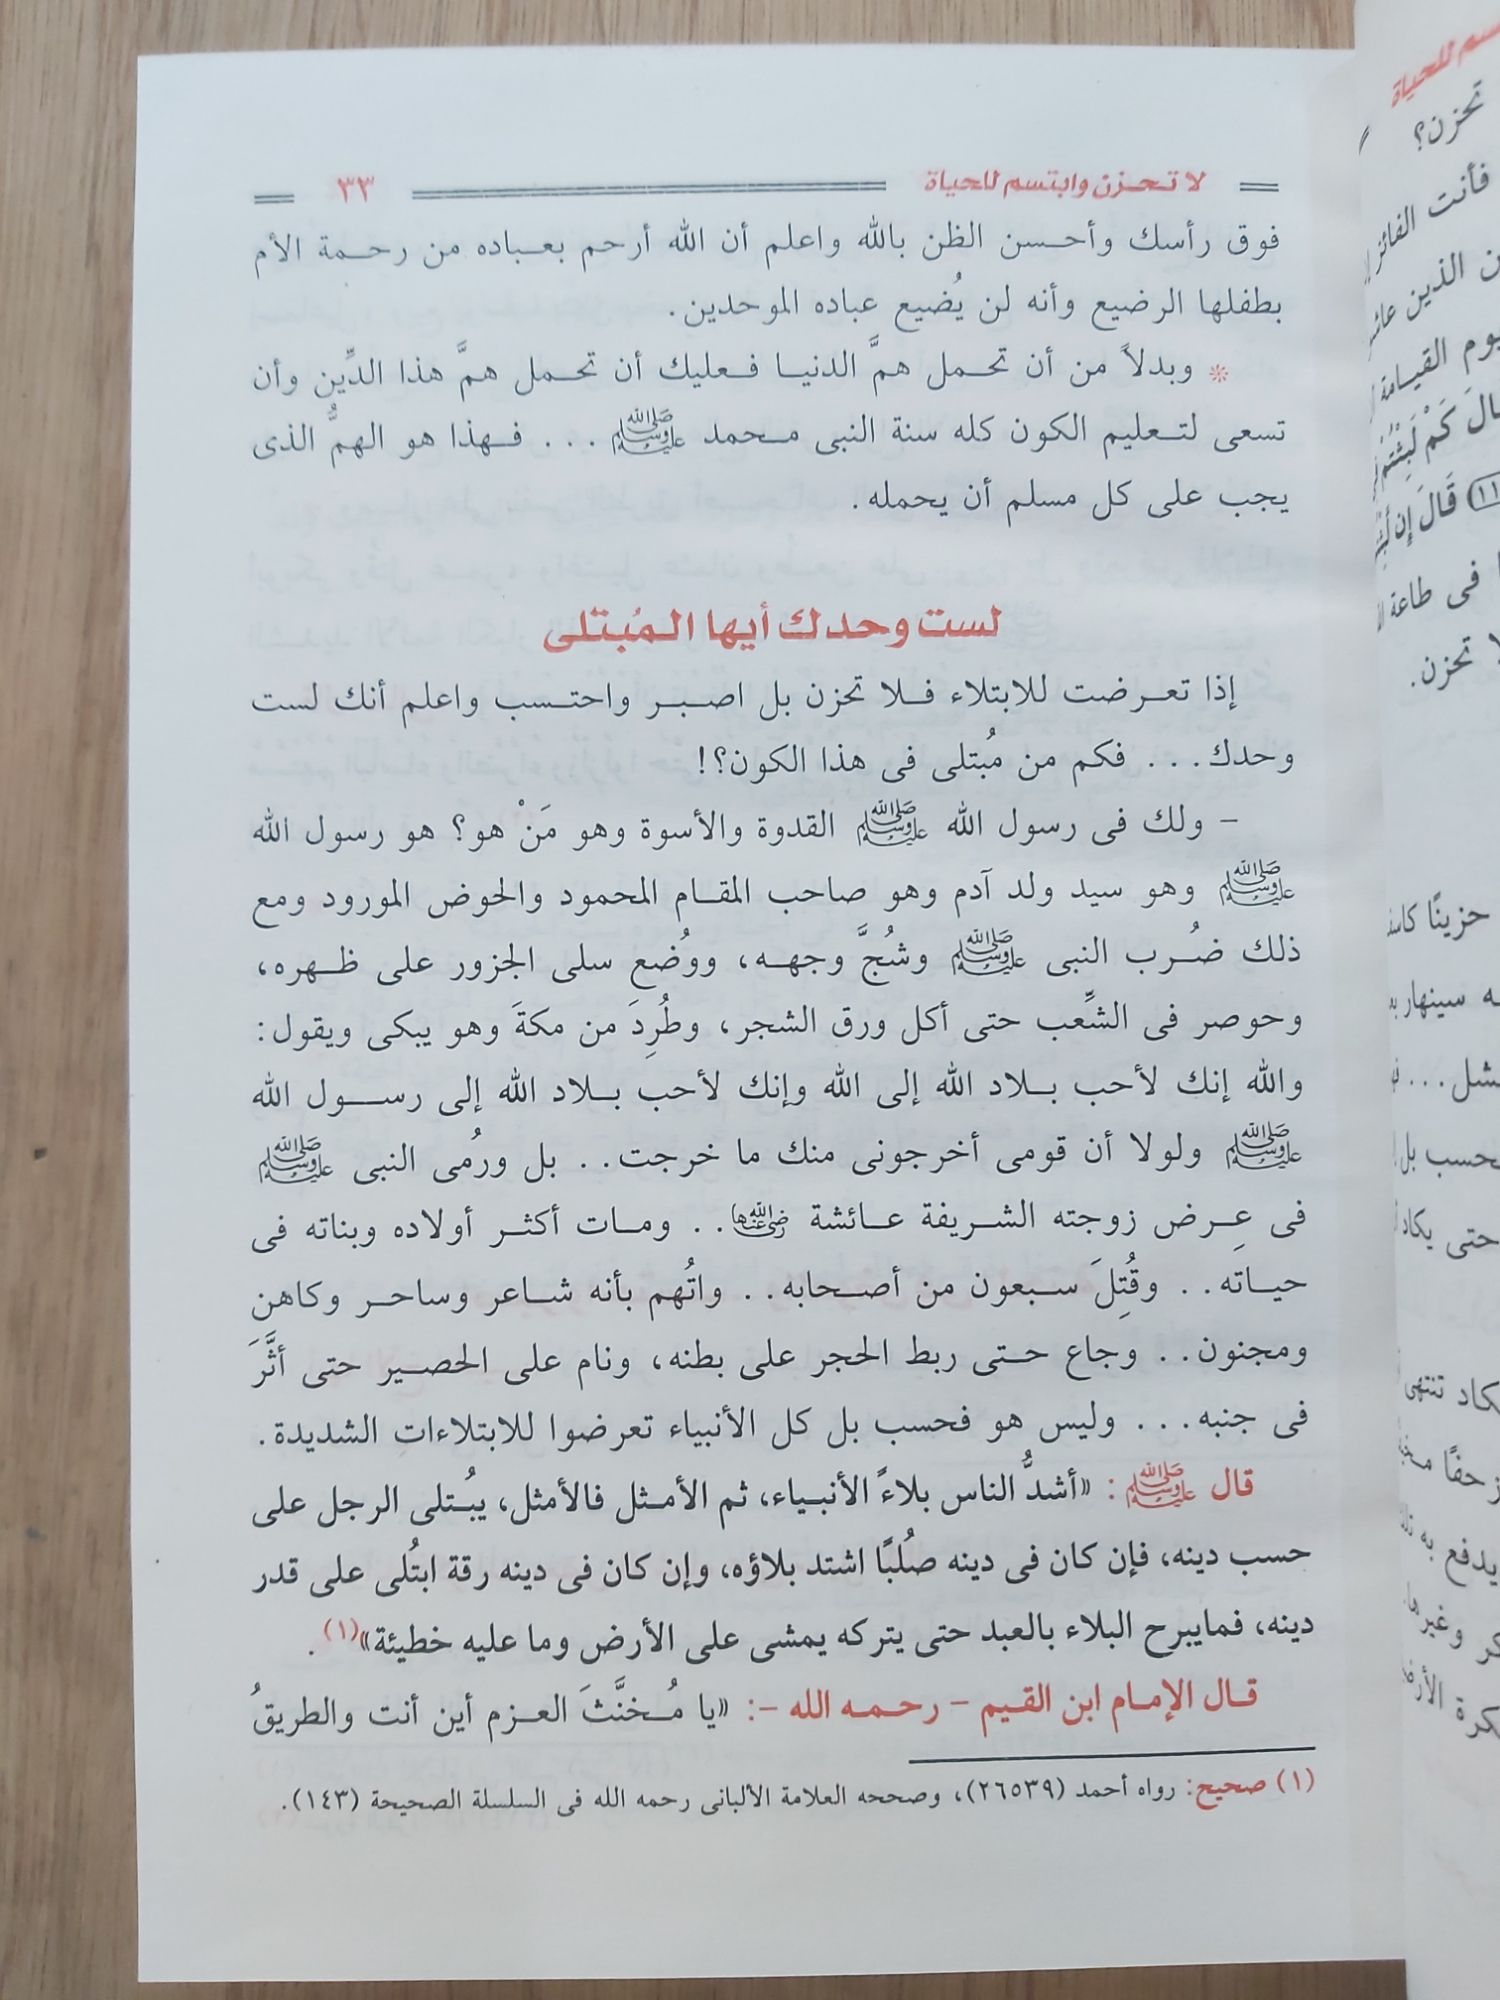 لا تحزن وابتسم للحياة ٣٣
فوق رأسك وأحسن الظن بالله واعلم أن الله أرحم بعباده من رحمة الأم
بطفلها الرضيع وأنه لن يُضيع عباده الموحدين.
* وبدلاً من أن تحمل همَّ الدنيا فعليك أن تحمل همَّ هذا الدِّين وأن
تسعى لتعليم الكون كله سنة النبى محمد ﷺ ... فهذا هو الهمُّ الذى
يجب على كل مسلم أن يحمله.
لست وحدك أيها المُبتلى
إذا تعرضت للابتلاء فلا تحزن بل اصبر واحتسب واعلم أنك لست
وحدك... فكم من مُبتلى فى هذا الكون؟!
- ولك فى رسول الله ﷺ القدوة والأسوة وهو مَنْ هو؟ هو رسول الله
ﷺ وهو سيد ولد آدم وهو صاحب المقام المحمود والحوض المورود ومع
ذلك ضُرب النبى ﷺ وشُجَّ وجهه، ووُضع سلى الجزور على ظهره،
وحوصر فى الشِّعب حتى أكل ورق الشجر، وطُرِدَ من مكةَ وهو يبكى ويقول:
والله إنك لأحب بلاد الله إلى الله وإنك لأحب بلاد الله إلى رسول الله
ﷺ ولولا أن قومى أخرجونى منك ما خرجت.. بل ورُمى النبى ﷺ
فى عِرض زوجته الشريفة عائشة رضي الله عنها.. ومات أكثر أولاده وبناته فى
حياته.. وقُتِلَ سبعون من أصحابه.. واتُهم بأنه شاعر وساحر وكاهن
ومجنون.. وجاع حتى ربط الحجر على بطنه، ونام على الحصير حتى أثَّرَ
فى جنبه... وليس هو فحسب بل كل الأنبياء تعرضوا للابتلاءاتِ الشديدة.
قال ﷺ: «أشدُّ الناس بلاءً الأنبياء، ثم الأمثل فالأمثل، يبُتلى الرجل على
حسب دينه، فإن كان فى دينه صُلبًا اشتد بلاؤه، وإن كان فى دينه رقة ابتُلى على قدر
دينه، فمايبرح البلاء بالعبد حتى يتركه يمشى على الأرض وما عليه خطيئة»(١).
قال الإمام ابن القيم - رحمه الله -: «يا مُخنَّثَ العزم أين أنت والطريقُ
(١) صحيح: رواه أحمد (٢٦٥٣٩)، وصححه العلامة الألبانى رحمه الله فى السلسلة الصحيحة (١٤٣).
للحياة
تحزن؟
فأنت الفائز
الذين
يوم القيامة
قَالَ كَمْ لَبِثْتُمْ
قَالَ إِن
فى طاعة
تحزن.
حزينًا
سينهار
بل
حتى يكاد
تنتهى
زحفًا
يدفع به